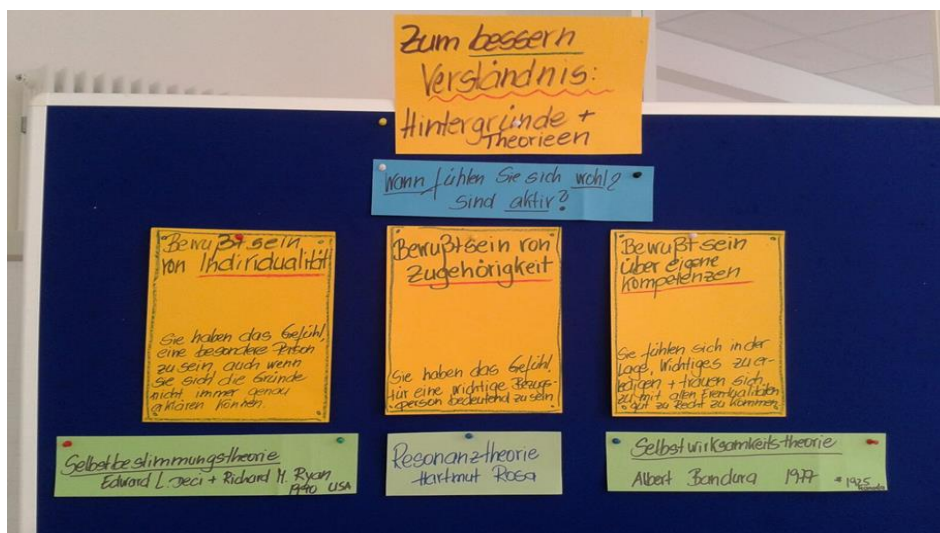 Zum bessern
Verständnis:
Hintergründe +
Theorieen
Wann fühlen Sie sich wohl?
sind aktiv?
Bewußtsein
von Individualität
Sie haben das Gefühl,
eine besondere Person
zu sein, auch wenn
sie sich die Gründe
nicht immer genau
erklären können.
Bewußtsein von
Zugehörigkeit
Sie haben das Gefühl
für eine wichtige Bezugs-
person bedeutend zu sein
Bewußtsein
über eigene
Kompetenzen
Sie fühlen sich in der
Lage, Wichtiges zu er-
ledigen + trauen sich
zu mit allen Eventualitäten
gut zu Recht zu kommen
Selbstbestimmungstheorie
Edward L. Deci + Richard M. Ryan
1990 USA
Resonanztheorie
Hartmut Rosa
Selbstwirksamkeits-theorie
Albert Bandura 1977 *1925